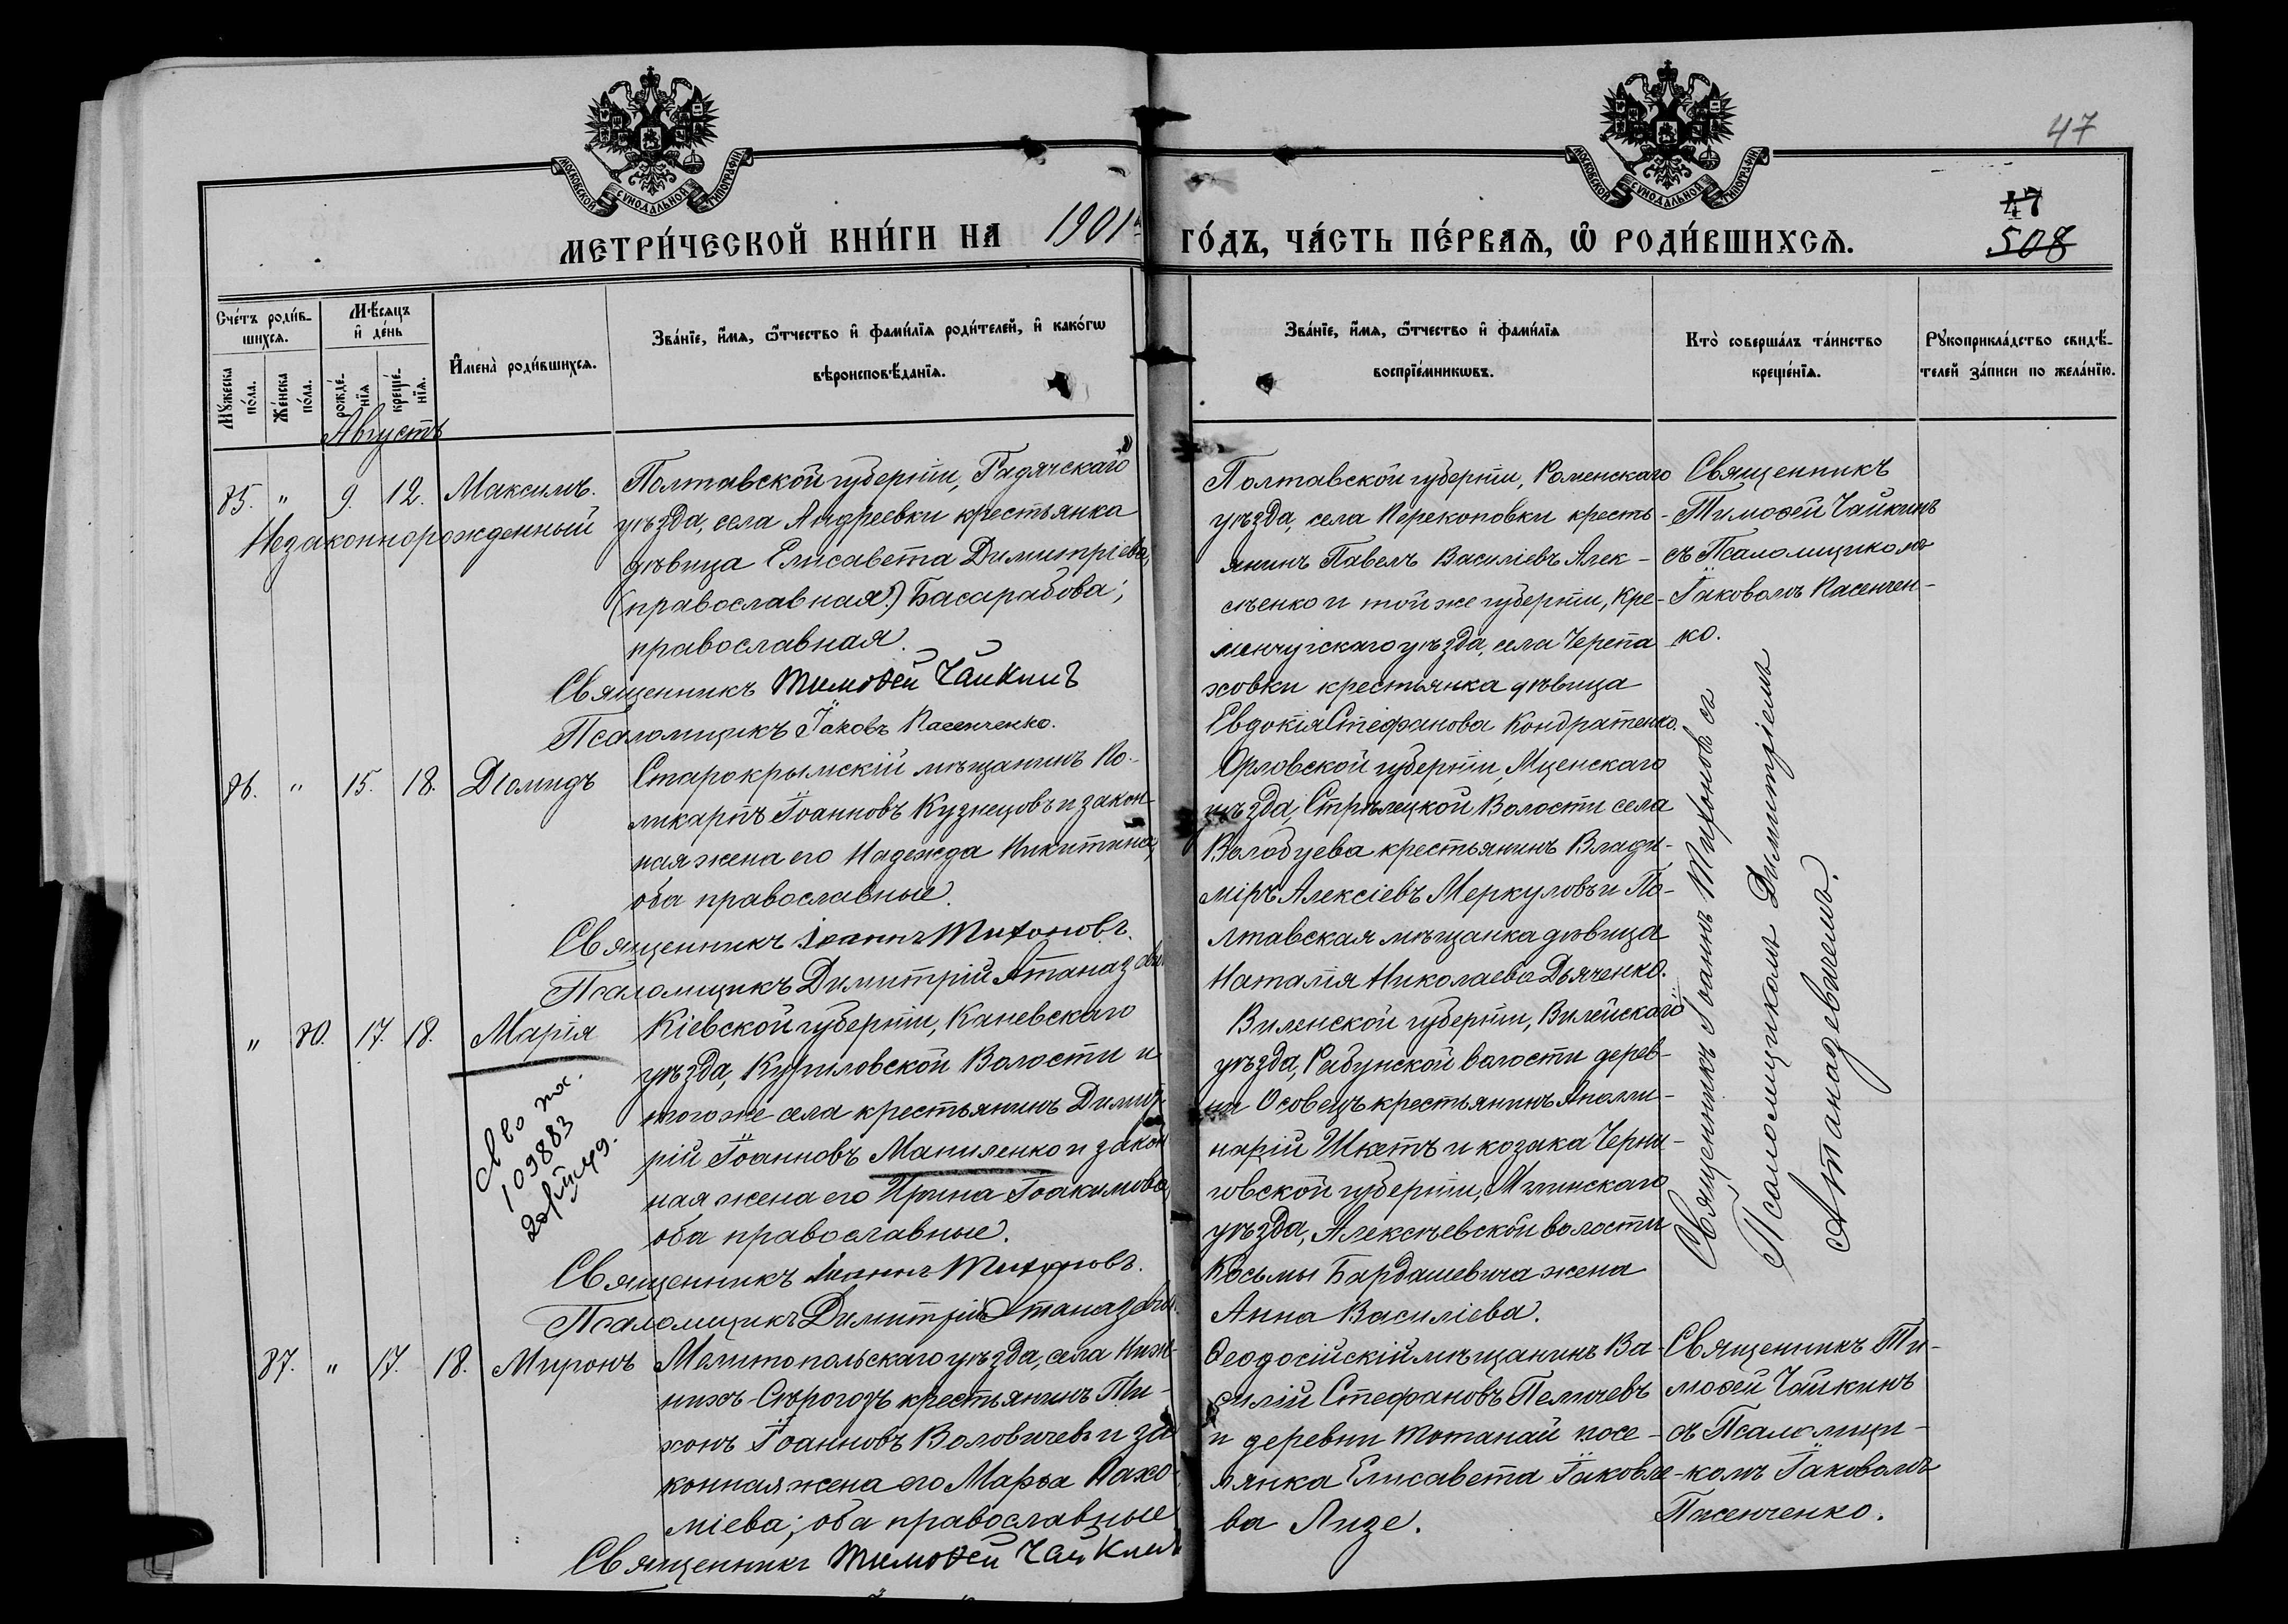 47
МОСКОВСКОЙ СѴНОДАЛЬНОЙ ТИПОГРАФІИ
МОСКОВСКОЙ СѴНОДАЛЬНОЙ ТИПОГРАФІИ
47
508
МЕТРИ́ЧЕСКОЙ КНИ́ГИ НА 1901й ГО́ДЪ, ЧА́СТЬ ПЕ́РВАѦ, Ѡ РОДИ́ВШИХСѦ.
Сче́тъ роди́в-
шихсѧ.
Мѹ́жеска по́ла.
Же́нска по́ла.
Мѣ́сѧцъ и де́нь
рожде́-
нїѧ
креще́-
нїѧ.
Имена̀ роди́вшихсѧ.
Зва́нїе, и́мѧ, ѻ҆́тчество и фами́лїѧ роди́телей, и како́гѡ
вѣроисповѣ́данїѧ.
Зва́нїе, и́мѧ, ѻ҆́тчество и фами́лїѧ
воспрїе́мникѡвъ.
Кто̀ соверша́лъ та́инство
креще́нїѧ.
Рѹкоприкла́дство свидѣ́-
телей за́писи по жела́нїю.
Августъ
85. " 9. 12. Максимъ.
Незаконнорожденный
Полтавской губерніи, Гадячскаго
уѣзда, села Андреевки крестьянка
дѣвица Елисавета Димитріева,
(православная.) Басарабова;
православная.
Священникъ Тимоѳей Чайкинъ
Псаломщикъ Іаковъ Пасенченко.
Полтавской губерніи, Роменскаго
уѣзда, села Перекоповки кресть-
янинъ Павелъ Василіевъ Алек-
сѣенко и той же губерніи, Кре-
менчугскаго уѣзда, села Черепа
ховки крестьянка дѣвица
Евдокія Стефанова Кондратенко.
Священникъ
Тимоѳей Чайкинъ
съ Псаломщикомъ
Іаковомъ Пасенчен-
ко.
86. " 15. 18. Діомидъ
Старокрымскій мѣщанинъ По-
ликарпъ Іоанновъ Кузнецовъ и закон-
ная жена его Надежда Никитина,
оба православные.
Священникъ Іоаннъ Тихоновъ.
Псаломщикъ Димитрій
Орловской губерніи, Мценскаго
уѣзда, Стрѣлецкой Волости села
Волобуева крестьянинъ Влади-
міръ Алексіевъ Меркуловъ и По-
лтавская мѣщанка дѣвица
Наталія Николаева Дьяченко.
Священникъ Іоаннъ Тихоновъ съ
Псаломщикомъ Димитріемъ
Атанадевичемъ.
" 80. 17. 18. Марія
Св во
109883
Кіевской губерніи, Каневскаго
уѣзда, Волости и
того же села крестьянинъ Димит-
рій Іоанновъ Маниленко и закон
ная жена его Ирина Іоакимова,
оба православные.
Священникъ Іоаннъ Тихоновъ.
Псаломщикъ Димитрій
Виленской губерніи, Вилейскаго
уѣзда, Рабунской волости дерев-
ни Осовецъ крестьянинъ Аполли-
нарій Шкетъ и козака Черни-
говской губерніи, Мглинскаго
уѣзда, Алексѣевской волости
Косьмы Бардашевича жена
Анна Василіева.
87. " 17. 18. Миронъ
Мелитопольскаго уѣзда, села Ниж-
нихъ-Сѣрогозъ крестьянинъ Ти-
хонъ Іоанновъ Воловичевъ и за
конная жена его Марѳа Пахо-
міева; оба православные
Священникъ Тимоѳей Чайкинъ
Ѳеодосійскій мѣщанинъ Ва-
силій Стефановъ Пеличевъ
и деревни Тотанай посе-
лянка Елисавета Іаковле-
ва Лизе.
Священникъ Ти-
моѳей Чайкинъ
съ Псаломщи-
комъ Іаковомъ
Пасенченко.